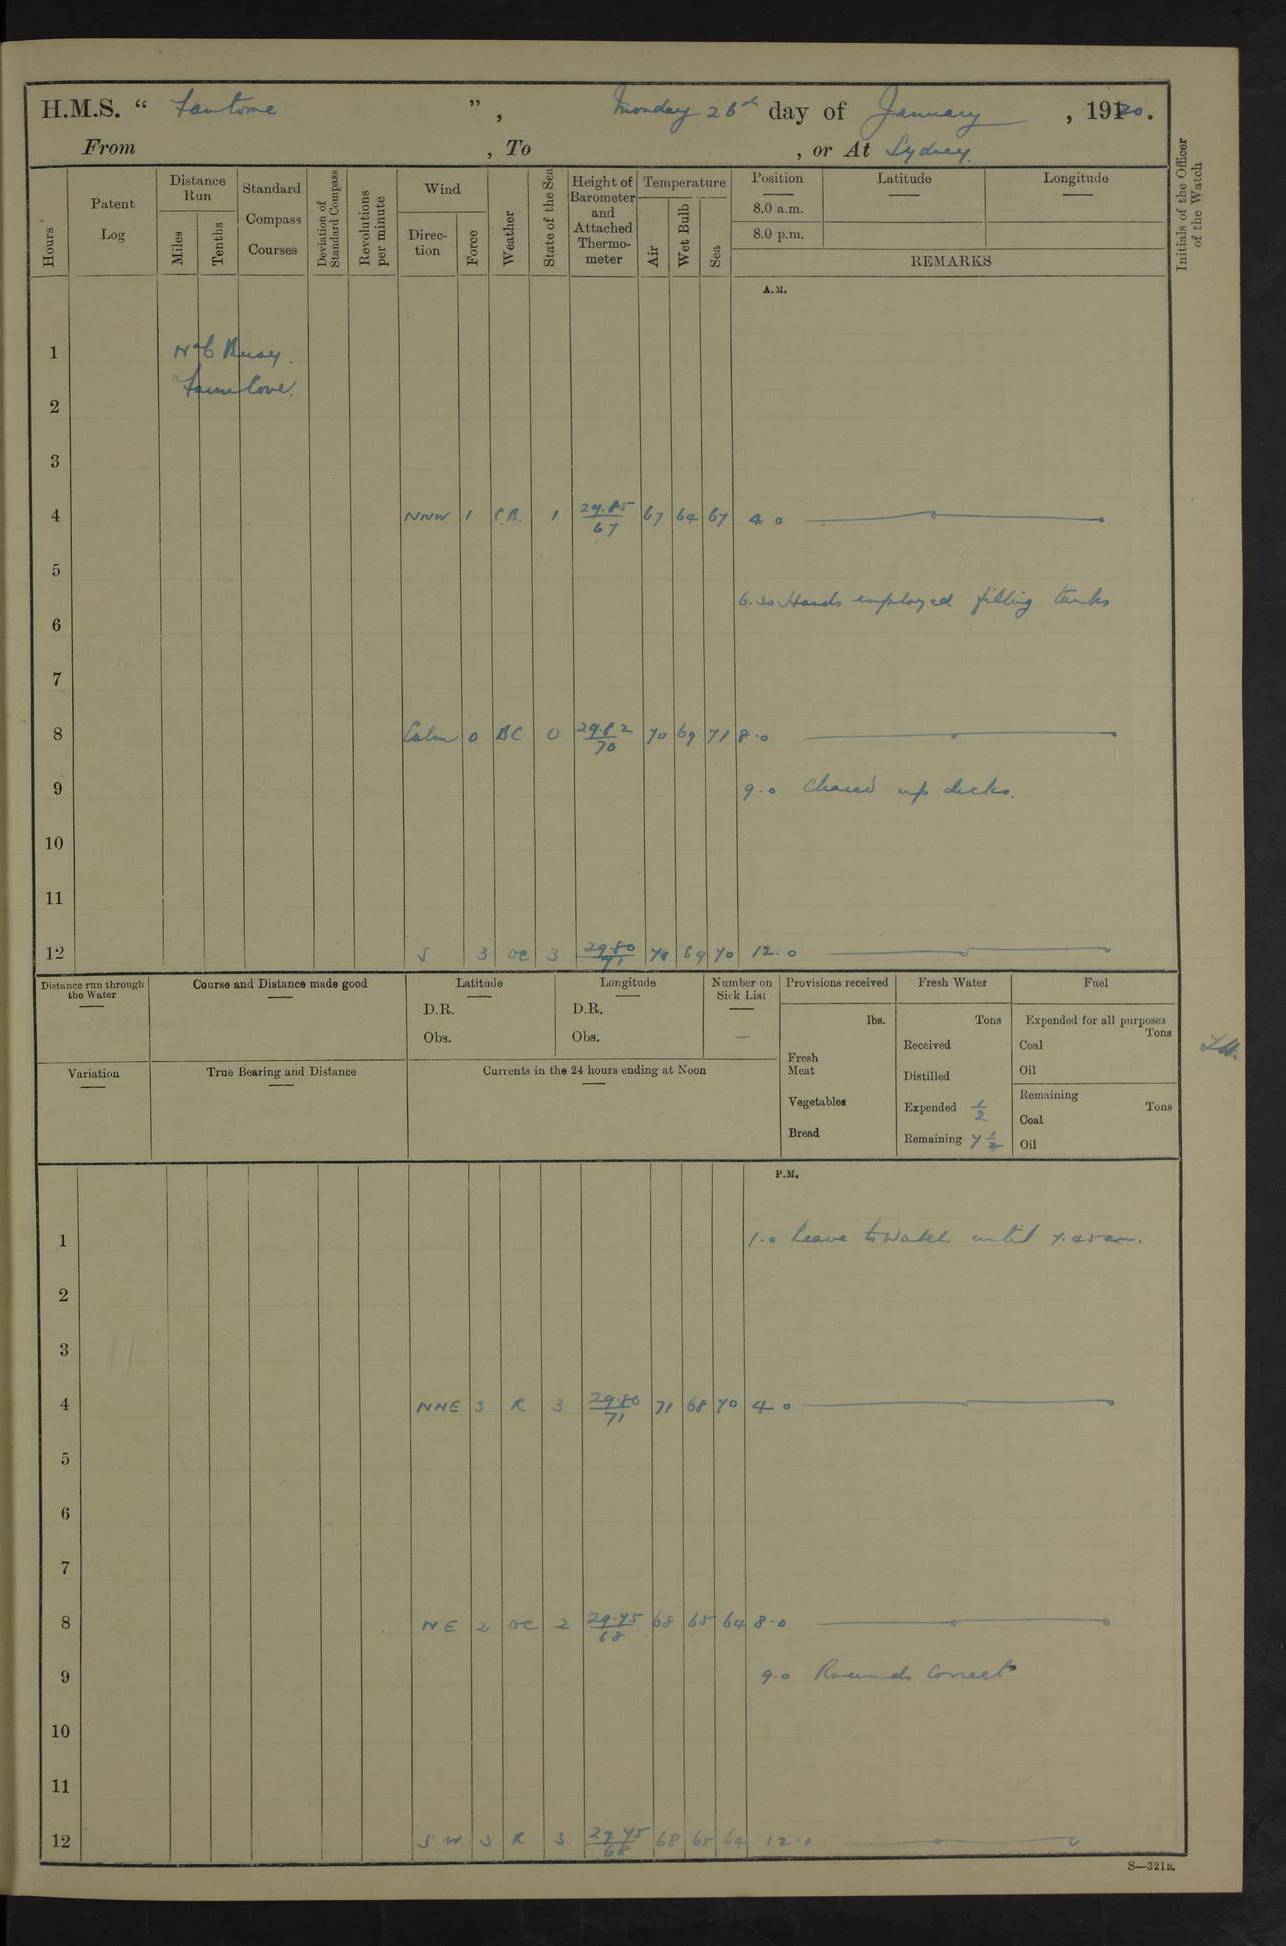 H.M.S. “ Fantome ”, Monday 26th day of January, 1920.
From , To , or At Sydney.
Hours
Patent Log
Distance Run
Miles
Tenths
Standard Compass Courses
Deviation of Standard Compass
Revolutions per minute
Wind
Direction
Force
Weather
State of the Sea
Height of Barometer and Attached Thermometer
Temperature
Air
Wet Bulb
Sea
Position
8.0 a.m.
8.0 p.m.
Latitude
Longitude
REMARKS
Initials of the Officer of the Watch
A.M.
1 No 6 Buoy.
Farm Cove.
2
3
4 NNW 1 1 29.85/67 67 64 67 4 0
5
6.30 Hands employed filling tanks
6
7
8 Calm 0 BC 0 29.82/70 70 69 71 8.0
9 9.0 Cleared up decks.
10
11
12 S 3 OC 3 29.80/71 69 70 12.0
Distance run through the Water
Course and Distance made good
Latitude
D.R.
Obs.
Longitude
D.R.
Obs.
Number on Sick List
—
Provisions received
lbs.
Fresh Meat
Vegetables
Bread
Fresh Water
Tons
Received
Distilled
Expended 1/2
Remaining 7 1/2
Fuel
Expended for all purposes
Tons
Coal
Oil
Remaining
Tons
Coal
Oil
Variation
True Bearing and Distance
Currents in the 24 hours ending at Noon
P.M.
1 1.0 Leave to Watch until 7.45 am.
2
3
4 NNE 3 R 3 29.80/71 71 68 70 4 0
5
6
7
8 NE 2 OC 2 29.75/68 68 65 64 8.0
9 9.0 Rounds Correct
10
11
12 SW 3 R 3 29.75/68 68 65 64 12.0
S—321B.